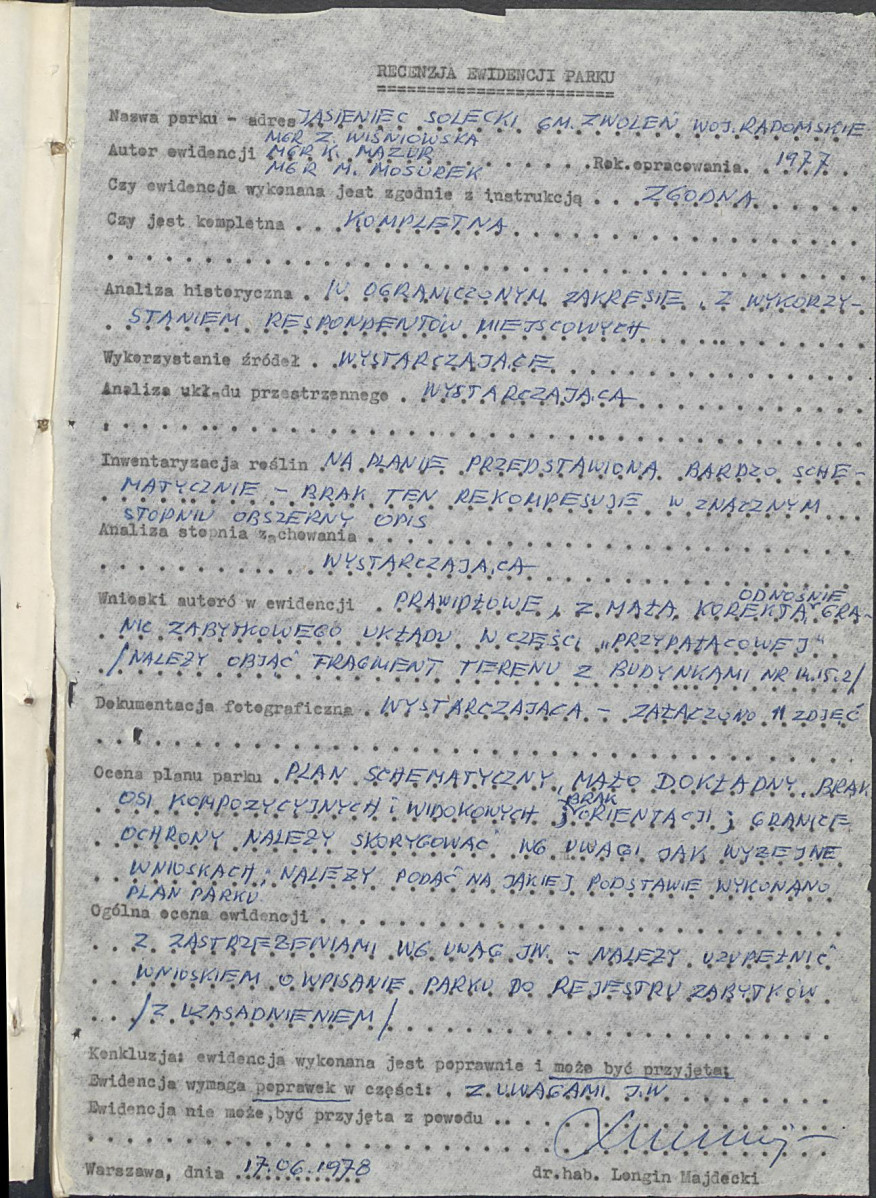 RECENZJA EWIDENCJI PARKU
Nazwa parku - adres JASIENIEC SOLECKI GM. ZWOLEŃ WOJ. RADOMSKIE
MGR Z. WIŚNIOWSKA
Autor ewidencji MGR K. MAZUR Rok.opracowania. 1977
MGR M. MOSUREK
Czy ewidencja wykonana jest zgodnie z instrukcją ZGODNA
Czy jest kompletna KOMPLETNA
Analiza historyczna W OGRANICZONYM ZAKRESIE, Z WYKORZY-
STANIEM RESPONDENTÓW MIEJSCOWYCH
Wykorzystanie źródeł WYSTARCZAJĄCE
Analiza układu przestrzennego WYSTARCZAJĄCA
Inwentaryzacja roślin NA PLANIE PRZEDSTAWIONA BARDZO SCHE-
MATYCZNIE - BRAK TEN REKOMPESUJE W ZNACZNYM
STOPNIU OBSZERNY OPIS
Analiza stopnia zachowania
WYSTARCZAJĄCA
ODNOŚNIE
Wnioski autoró w ewidencji PRAWIDŁOWE, Z MAŁĄ KOREKTĄ GRA-
NIC ZABYTKOWEGO UKŁADU W CZĘŚCI "PRZYPAŁACOWEJ"
/NALEŻY OBJĄĆ FRAGMENT TERENU Z BUDYNKAMI NR 14.15.2/
Dokumentacja fotograficzna WYSTARCZAJĄCA - ZAŁĄCZONO 11 ZDJĘĆ
Ocena planu parku PLAN SCHEMATYCZNY, MAŁO DOKŁADNY, BRAK
OSI KOMPOZYCYJNYCH i WIDOKOWYCH ; BRAK ORIENTACJI ; GRANICE
OCHRONY NALEŻY SKORYGOWAĆ WG UWAGI JAK WYŻEJ WE
WNIOSKACH; NALEŻY PODAĆ NA JAKIEJ PODSTAWIE WYKONANO
PLAN PARKU
Ogólna ocena ewidencji
Z ZASTRZEŻENIAMI WG UWAG JW. - NALEŻY UZUPEŁNIĆ
WNIOSKIEM O WPISANIE PARKU DO REJESTRU ZABYTKÓW
/Z UZASADNIENIEM/
Konkluzja: ewidencja wykonana jest poprawnie i może być przyjęta;
Ewidencja wymaga poprawek w części: Z UWAGAMI J.W.
Ewidencja nie może,być przyjęta z powodu
Warszawa, dnia 17.06.1978 dr.hab. Longin Majdecki